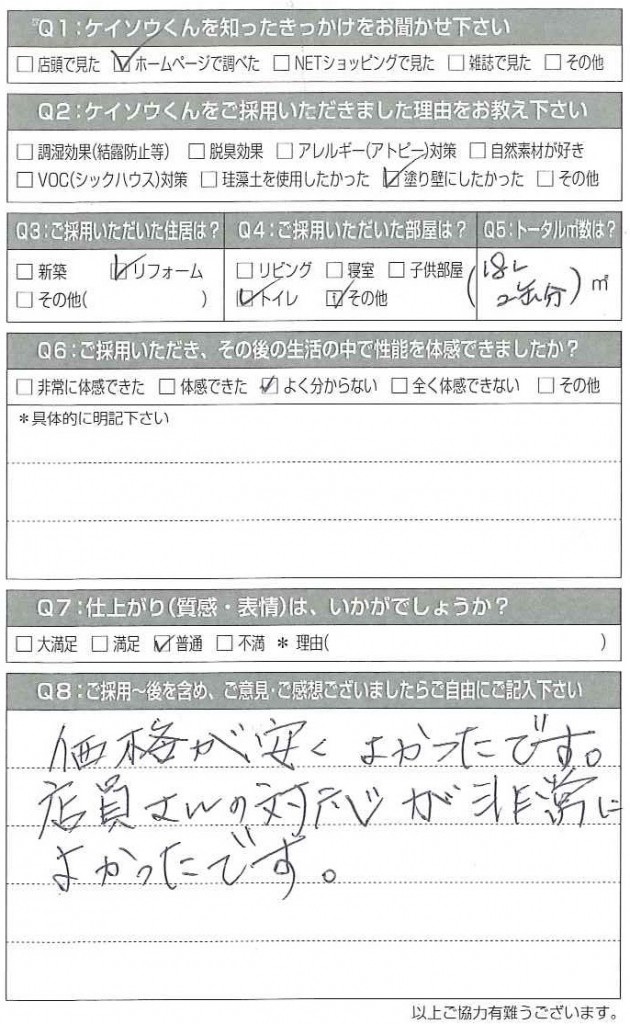 Q1：ケイソウくんを知ったきっかけをお聞かせ下さい
□店頭で見た ☑ホームページで調べた □NETショッピングで見た □雑誌で見た □その他
Q2：ケイソウくんをご採用いただきました理由をお教え下さい
□調湿効果(結露防止等) □脱臭効果 □アレルギー(アトピー)対策 □自然素材が好き
□VOC(シックハウス)対策 □珪藻土を使用したかった ☑塗り壁にしたかった □その他
Q3：ご採用いただいた住居は？
□新築 ☑リフォーム
□その他( )
Q4：ご採用いただいた部屋は？
□リビング □寝室 □子供部屋
☑トイレ ☑その他
Q5：トータル㎡数は？
(18L
2缶分) ㎡
Q6：ご採用いただき、その後の生活の中で性能を体感できましたか？
□非常に体感できた □体感できた ☑よく分からない □全く体感できない □その他
＊具体的に明記下さい
Q7：仕上がり(質感・表情)は、いかがでしょうか？
□大満足 □満足 ☑普通 □不満 ＊理由( )
Q8：ご採用～後を含め、ご意見・ご感想ございましたらご自由にご記入下さい
価格が安くよかったです。
店員さんの対応が非常に
よかったです。
以上ご協力有難うございます。